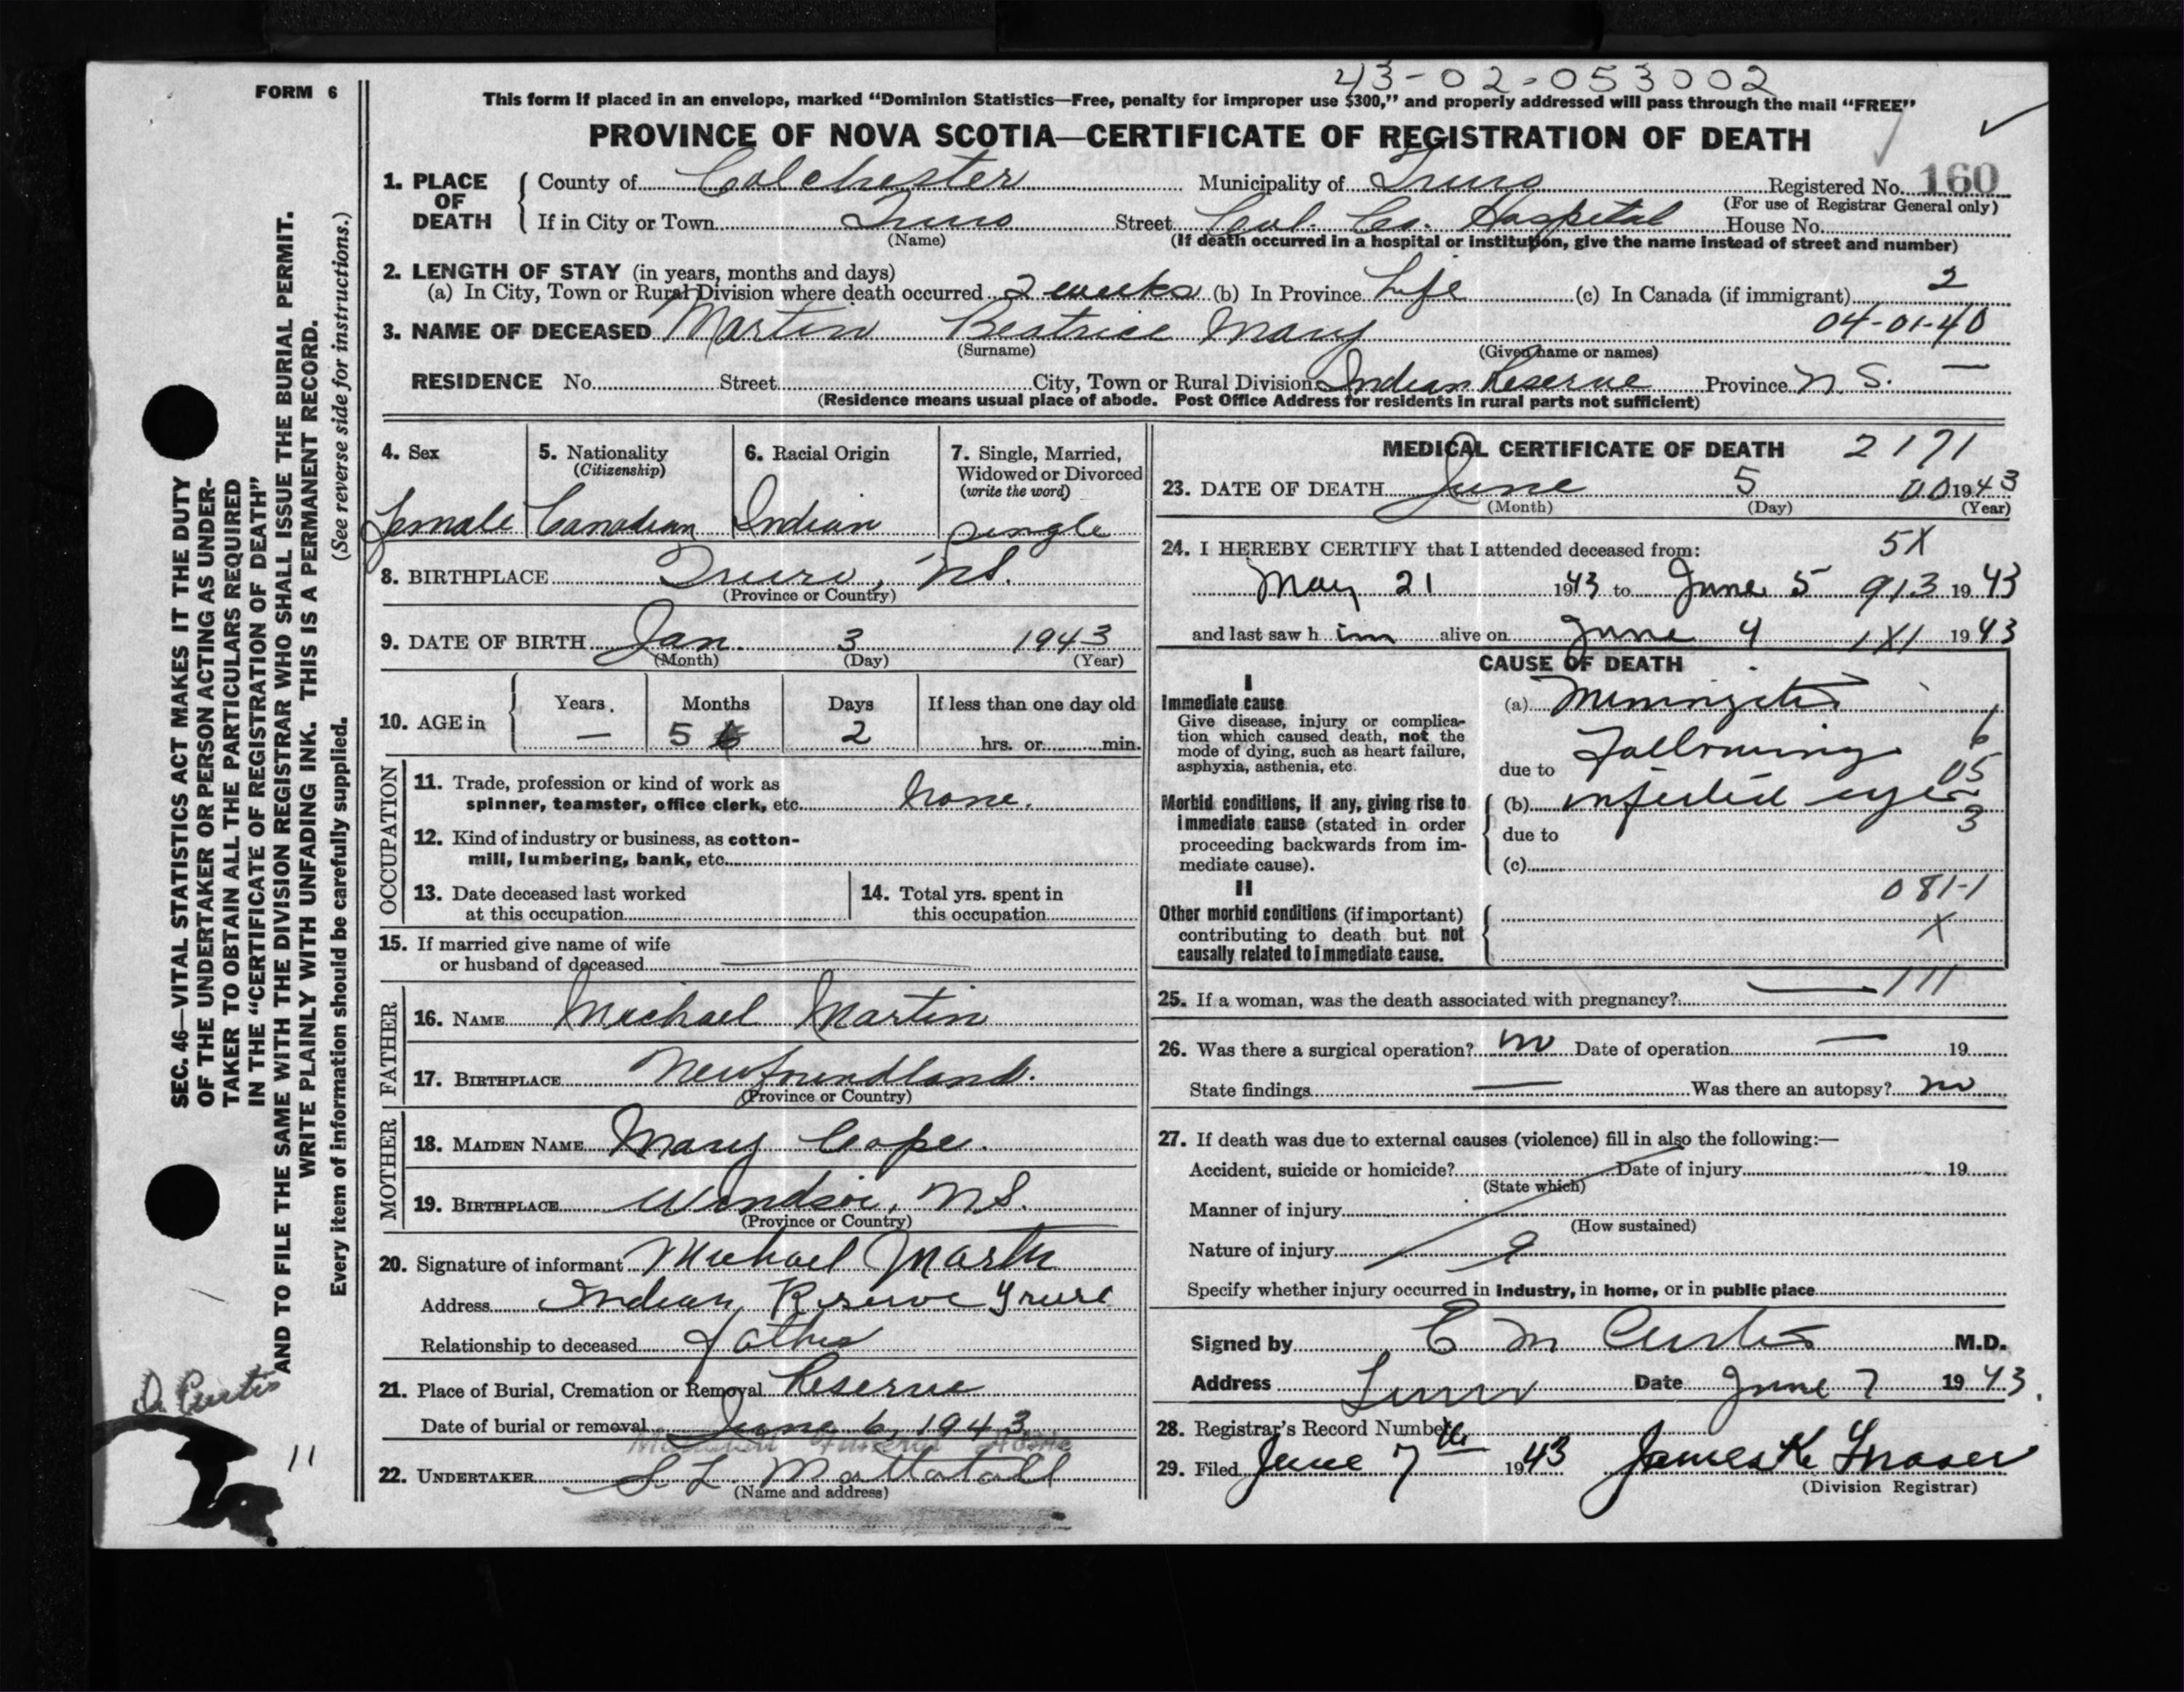 43-02-053002
FORM 6
This form if placed in an envelope, marked "Dominion Statistics—Free, penalty for improper use $300," and properly addressed will pass through the mail "FREE"
PROVINCE OF NOVA SCOTIA—CERTIFICATE OF REGISTRATION OF DEATH
1. PLACE OF DEATH { County of Colchester Municipality of Truro Registered No. 160
(For use of Registrar General only)
If in City or Town Truro Street Col. Co. Hospital House No.
(Name) (If death occurred in a hospital or institution, give the name instead of street and number)
2. LENGTH OF STAY (in years, months and days)
(a) In City, Town or Rural Division where death occurred 2 weeks (b) In Province Life (c) In Canada (if immigrant) 2
3. NAME OF DECEASED Martin Beatrice Mary 04-01-40
(Surname) (Given name or names)
RESIDENCE No. Street City, Town or Rural Division Indian Reserve Province N S. —
(Residence means usual place of abode. Post Office Address for residents in rural parts not sufficient)
4. Sex
Female
5. Nationality
(Citizenship)
Canadian
6. Racial Origin
Indian
7. Single, Married, Widowed or Divorced
(write the word)
single
8. BIRTHPLACE Truro, N.S.
(Province or Country)
9. DATE OF BIRTH Jan. 3 1943
(Month) (Day) (Year)
10. AGE in { Years Months Days If less than one day old
— 5 2 hrs. or min.
OCCUPATION
11. Trade, profession or kind of work as
spinner, teamster, office clerk, etc. none.
12. Kind of industry or business, as cotton-
mill, lumbering, bank, etc.
13. Date deceased last worked
at this occupation
14. Total yrs. spent in
this occupation
15. If married give name of wife
or husband of deceased
FATHER
16. NAME Michael Martin
17. BIRTHPLACE Newfoundland.
(Province or Country)
MOTHER
18. MAIDEN NAME Mary Cope.
19. BIRTHPLACE Windsor, N.S.
(Province or Country)
20. Signature of informant Michael Martin
Address Indian Reserve Truro
Relationship to deceased father
21. Place of Burial, Cremation or Removal Reserve
Date of burial or removal June 6, 1943
22. UNDERTAKER S. L. Mattatall
(Name and address)
MEDICAL CERTIFICATE OF DEATH 2171
23. DATE OF DEATH June 5 00 1943
(Month) (Day) (Year)
24. I HEREBY CERTIFY that I attended deceased from: 5X
May 21 1943 to June 5 913 1943
and last saw h im alive on June 4 1X1 1943
CAUSE OF DEATH
I
Immediate cause
Give disease, injury or complica-
tion which caused death, not the
mode of dying, such as heart failure,
asphyxia, asthenia, etc.
(a) Meningitis 1
6
due to Following
05
Morbid conditions, if any, giving rise to
immediate cause (stated in order
proceeding backwards from im-
mediate cause).
(b) infected eyes
3
due to
(c)
II 081-1
Other morbid conditions (if important)
contributing to death but not
causally related to immediate cause.
X
25. If a woman, was the death associated with pregnancy? — 111
26. Was there a surgical operation? no Date of operation — 19
State findings — Was there an autopsy? no
27. If death was due to external causes (violence) fill in also the following:—
Accident, suicide or homicide? Date of injury 19
(State which)
Manner of injury
(How sustained)
Nature of injury 9
Specify whether injury occurred in industry, in home, or in public place
Signed by E M Curtis M.D.
Address Truro Date June 7 1943.
28. Registrar's Record Number
29. Filed June 7th 1943 James K. Fraser
(Division Registrar)
SEC. 46—VITAL STATISTICS ACT MAKES IT THE DUTY
OF THE UNDERTAKER OR PERSON ACTING AS UNDER-
TAKER TO OBTAIN ALL THE PARTICULARS REQUIRED
IN THE "CERTIFICATE OF REGISTRATION OF DEATH"
AND TO FILE THE SAME WITH THE DIVISION REGISTRAR WHO SHALL ISSUE THE BURIAL PERMIT.
WRITE PLAINLY WITH UNFADING INK. THIS IS A PERMANENT RECORD.
Every item of information should be carefully supplied. (See reverse side for instructions.)
Dr Curtis
11